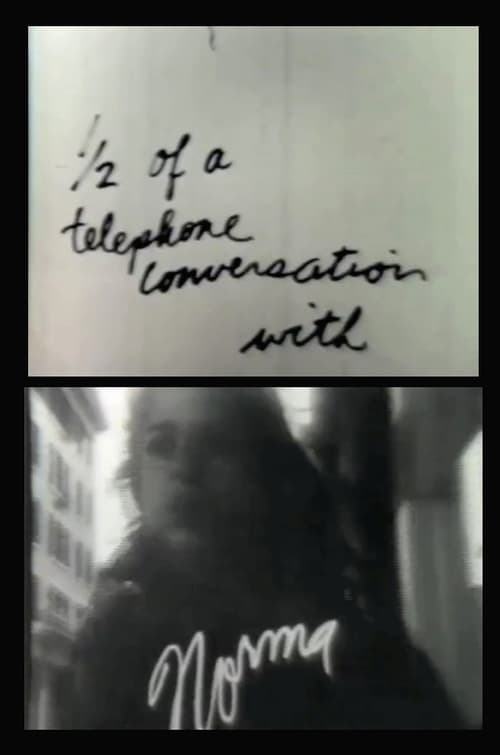 1/2 of a
telephone
conversation
with
Norma